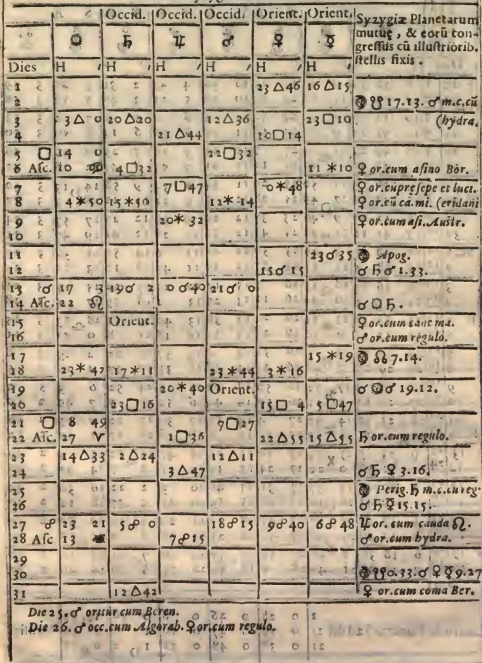 Occid. Occid. Occid. Orient. Orient. Syzygiæ Planetarum
☉ ♄ ♃ ♂ ♀ ☿ mutuę, & eorū con-
gressus cū illustriorib.
Dies H ' H ' H ' H ' H ' H ' stellis fixis.
1 23 △ 46 16 △ 15
2 ☋ 17.13. ♂ m.c.cū
3 3 △ 0 20 △ 20 12 △ 36 23 □ 10 (hydra.
4 21 △ 44 10 □ 14
5 □ 14 0 22 □ 32
6 Asc. 10 4 □ 32 11 * 10 ♀ or.cum asino Bor.
7 7 □ 47 0 * 48 ♀ or.cū presepe et luci.
8 4 * 50 15 * 50 12 * 14 ♀ or.cū ca. mi. (eridani
9 20 * 32 ♀ or.cum asi. Austr.
10
11 23 ☌ 35 Apog.
12 15 ☌ 15 ☌ ♄ ♂ 1.33.
13 ☌ 17 13 19 ☌ 2 0 ☌ 40 21 ☌ 0
14 Asc. 22 ♌ ☌ ☉ ♄.
15 Orient. ♀ or.cum cane ma.
16 ♂ or.cum regulo.
17 15 * 19 ☊ 7.14.
18 23 * 47 17 * 11 23 * 44 3 * 16
19 20 * 40 Orient. ☌ ☉ ♂ 19.12.
20 23 □ 16 15 □ 4 5 □ 47
21 □ 8 49 7 □ 27
22 Asc. 27 ♈ 1 □ 36 22 △ 55 15 △ 55 ♄ or.cum regulo.
23 14 △ 33 2 △ 24 12 △ 11
24 3 △ 47 ☌ ♄ ♀ 3.16.
25 Perig. ♄ m.c.cu reg.
26 ☌ ♄ ☿ 15.15.
27 ☍ 23 21 5 ☍ 0 18 ☍ 15 9 ☍ 40 6 ☍ 48 ♃ or.cum cauda ♌.
28 Asc 13 7 ☍ 15 ♂ or.cum hydra.
29
30 ☋ 0.33. ☌ ♀ ☿ 9.27
31 12 △ 42 ♀ or.cum coma Ber.
Die 25. ♂ oritur cum Beren.
Die 26. ♂ occ.cum Algorab. ♀ or.cum regulo.